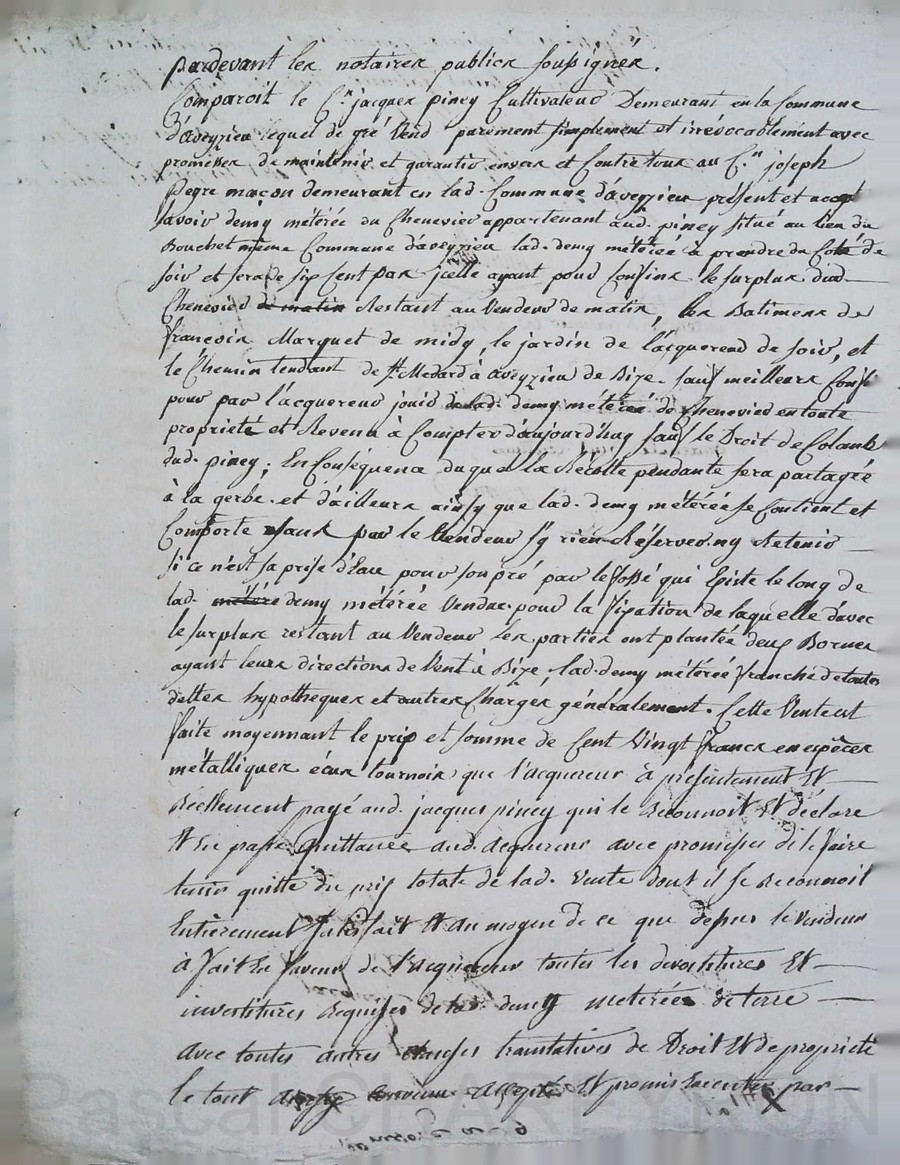 pardevant les notaires publics soussignés.
Comparoit le C.n jacques piney Cultivateur Demeurant en la Commune
d'aveyzieu lequel de gré Vend purement simplement et irrévocablement avec
promesses de maintenir et garantir envers et Contre tous au C.n joseph
Pegre maçon demeurant en lad. Commune d'aveyzieu présent et accept
savoir demy métérée du Chenevier appartenant aud. piney situé au lieu du
Bouchet même Commune d'aveyzieu lad. demy métérée à prendre du Coté de
soir et sera de six Cent pas jcelle ayant pour Confins le surplus dud.
Chenevier de matin Restant au Vendeur de matin, les Batimens de
françois Marquet de midy, le jardin de l'acquereur de soir, et
le Chemin tendant de St. Medard à aveyzieu de Bize. sauf meilleurs Conf.
pour par l'acquereur jouir de lad. demy métérée de Chenevier en toute
proprieté et Revenu à Compter d'aujourd'huy sauf le Droit de Colain
dud. piney; En Conséquence duquel la Récolte pendante sera partagée
à la gerbe. et d'ailleurs ainsy que lad. demy métérée se Contient et
Comporte sans par le Vendeur s'y rien Réserver ny Retenir
si ce n'est sa prise d'Eau pour son pré par le fossé qui Existe le long de
lad. métérée demy métérée Vendue. pour la fixation de laquelle d'avec
le surplus restant au Vendeur les parties ont plantée deux Bornes
ayant leurs directions de Vent à Bize, lad. demy métérée franche de toutes
dettes hypotheques et autres Charges généralement. Cette Vente est
faite moyennant le prix et somme de Cent Vingt francs en espèces
métalliques écus tournois que l'acquereur à présentement Et
Réellement payé aud. jacques piney qui le Reconnoit Et déclare
Et En passe quittance aud. acquereur avec promesses de le faire
tenir quitte du prix totale de lad. Vente dont il se Reconnoit
Entièrement satisfait Et au moyen de ce que dessus le Vendeur
à fait En faveur de l'acquereur toutes les devestitures Et
investitures Requises de lad. demy meterée de terre
avec toutes autres clauses translatives de Droit Et de proprieté
le tout ainsy convenu accepté Et promis Executer par